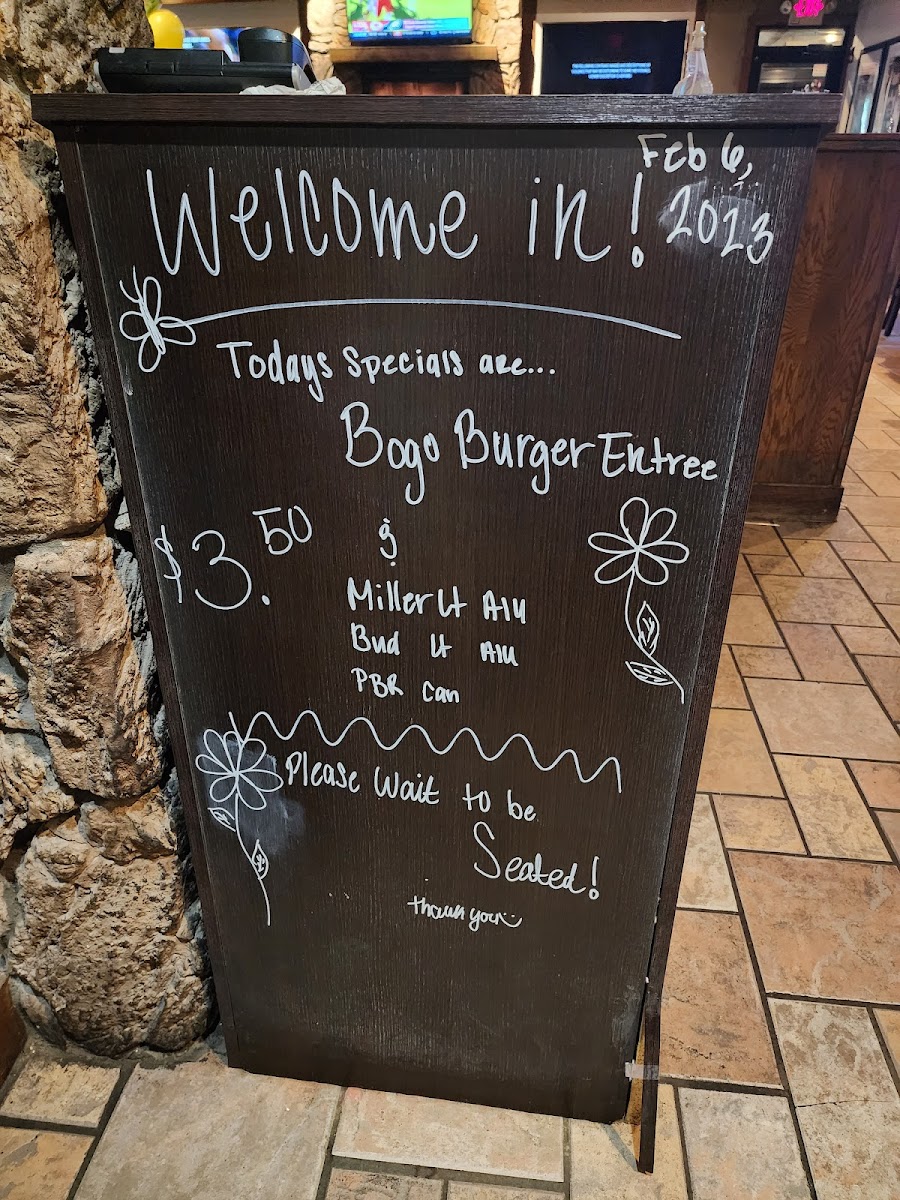 Welcome in!
Feb 6,
2023
Todays Specials are...
Bogo Burger Entree
$3.50
&
Miller Lt Alu
Bud Lt Alu
PBR Can
Please Wait to be
Seated!
thank you